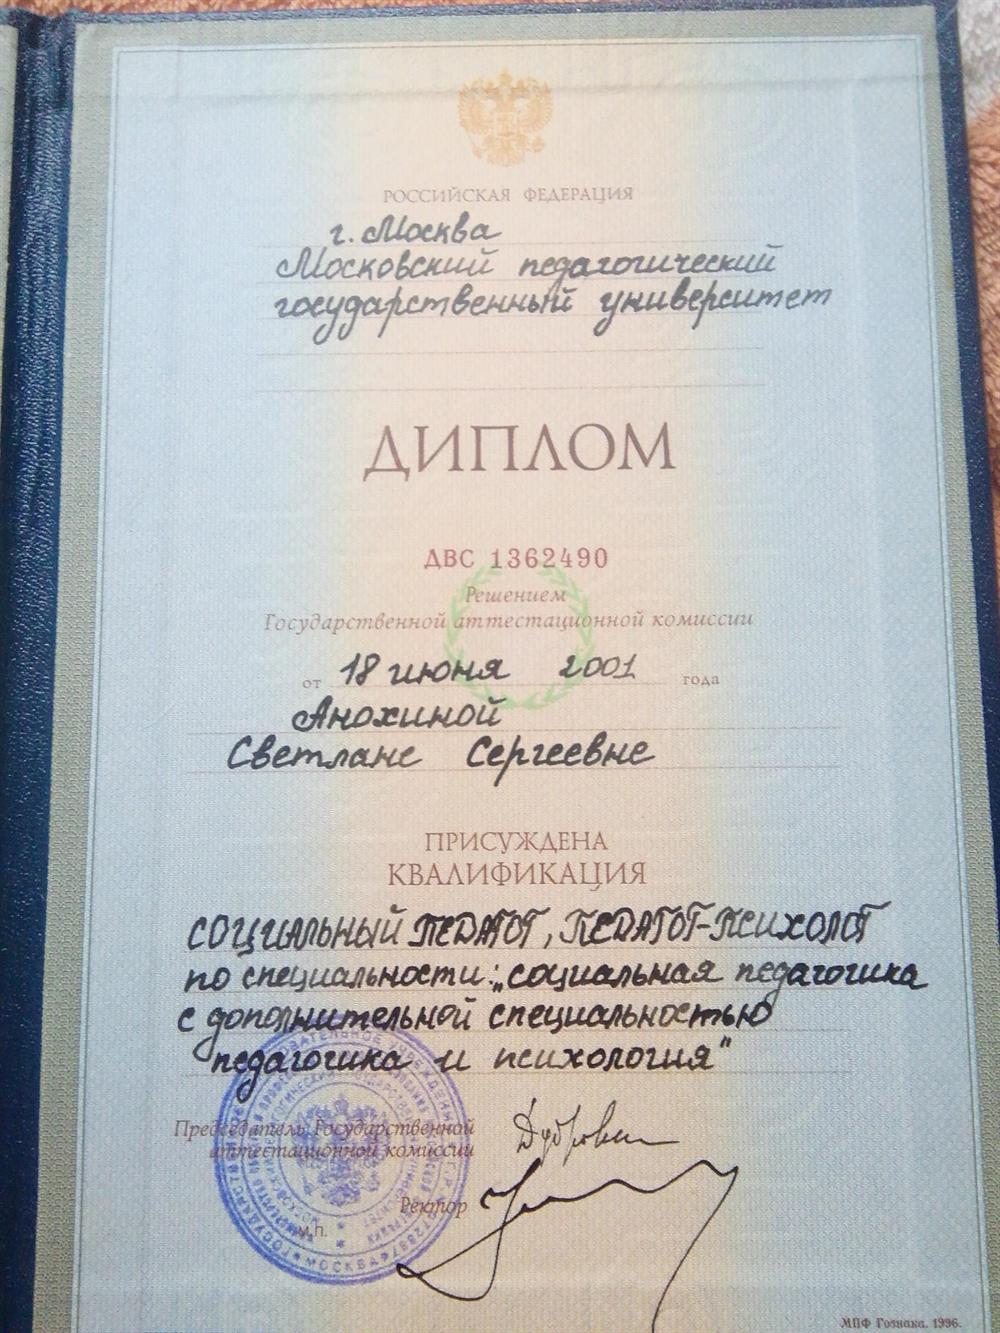 РОССИЙСКАЯ ФЕДЕРАЦИЯ
г. Москва
Московский педагогический
государственный университет
ДИПЛОМ
ДВС 1362490
Решением
Государственной аттестационной комиссии
от 18 июня 2001 года
Анохиной
Светлане Сергеевне
ПРИСУЖДЕНА
КВАЛИФИКАЦИЯ
СОЦИАЛЬНЫЙ ПЕДАГОГ, ПЕДАГОГ-ПСИХОЛОГ
по специальности: „социальная педагогика
с дополнительной специальностью
педагогика и психология"
Председатель Государственной
аттестационной комиссии
Ректор
М.П.
МОСКВА
МПФ Гознака. 1996.